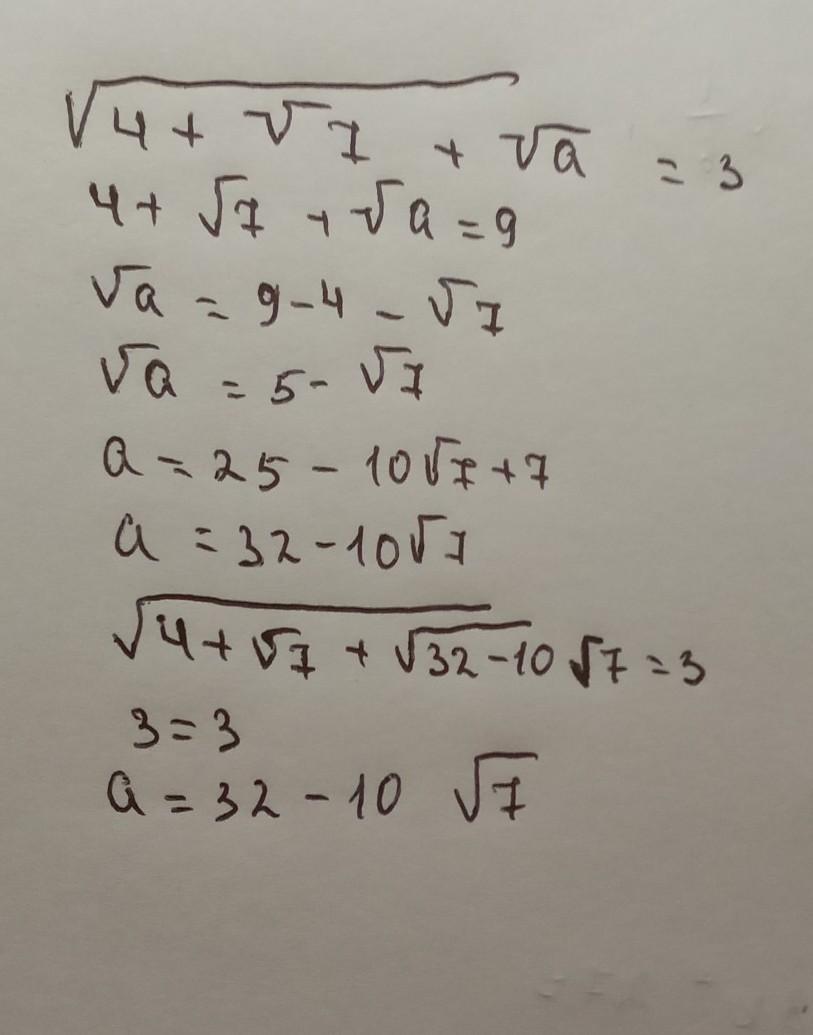 √4 + √7 + √a = 3
4 + √7 + √a = 9
√a = 9 - 4 - √7
√a = 5 - √7
a = 25 - 10√7 + 7
a = 32 - 10√7
√4 + √7 + √32 - 10 √7 = 3
3 = 3
a = 32 - 10 √7